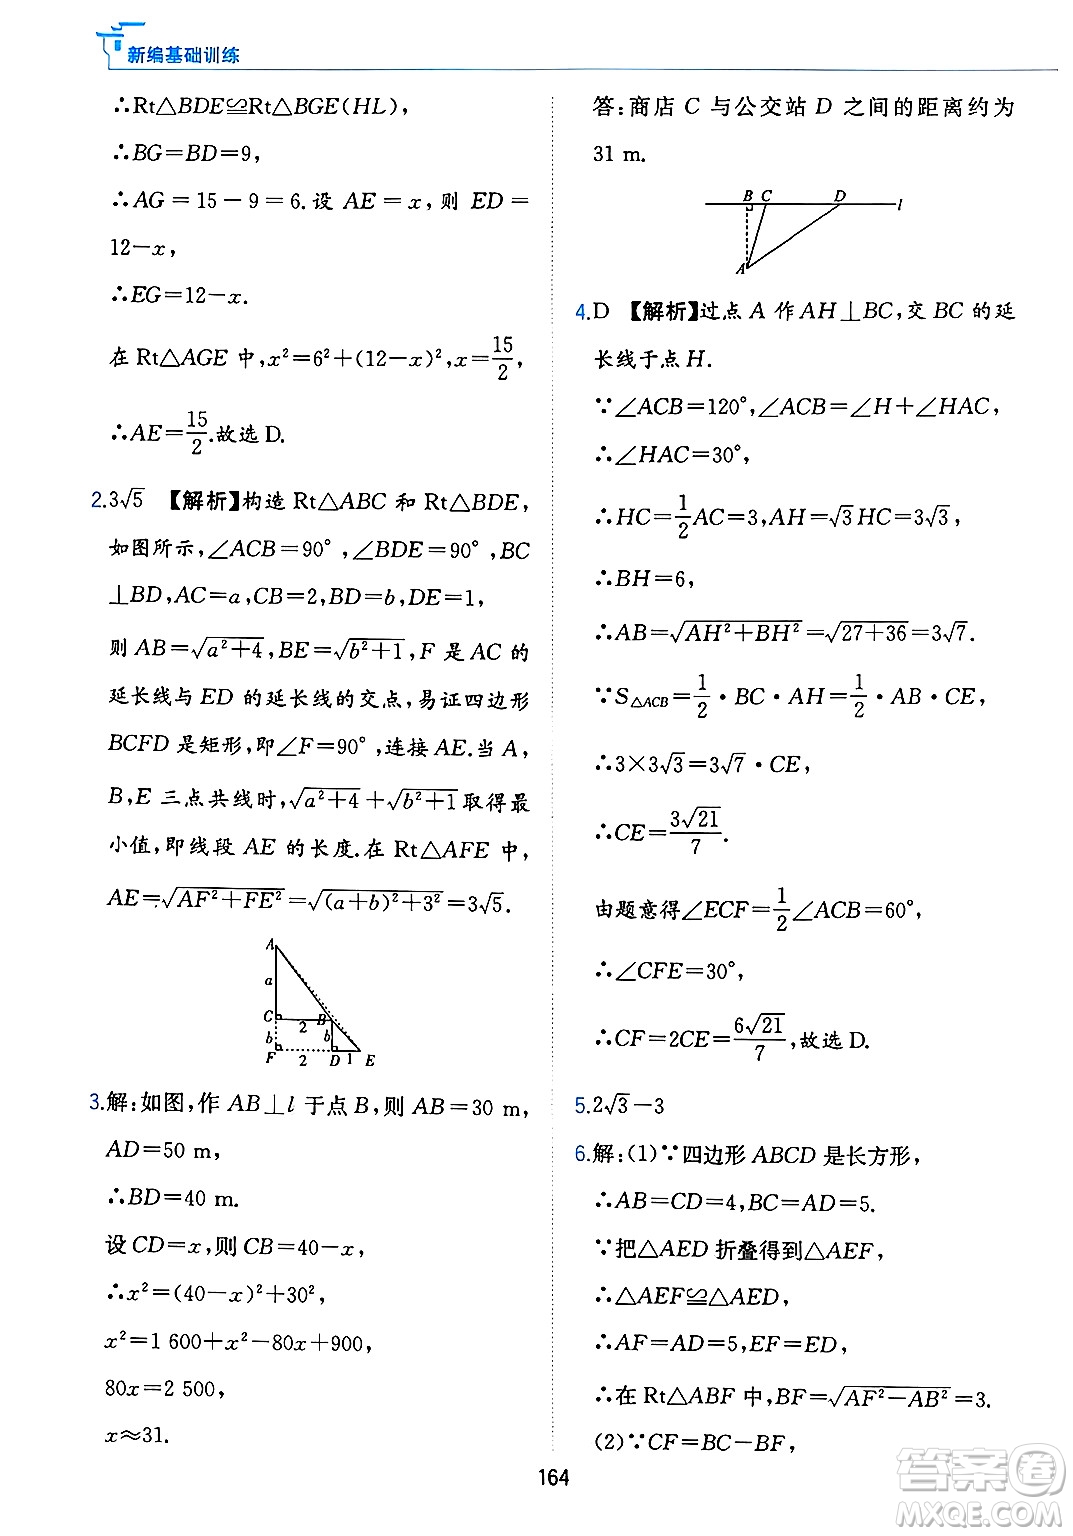 新编基础训练
∴Rt△BDE≌Rt△BGE(HL),
∴BG=BD=9,
∴AG=15-9=6.设 AE=x,则 ED=
12-x,
∴EG=12-x.
在 Rt△AGE 中,x²=6²+(12-x)²,x=15/2,
∴AE=15/2.故选 D.
2.3√5 【解析】构造 Rt△ABC 和 Rt△BDE,
如图所示,∠ACB=90°,∠BDE=90°,BC
⊥BD,AC=a,CB=2,BD=b,DE=1,
则 AB=√(a²+4),BE=√(b²+1),F 是 AC 的
延长线与 ED 的延长线的交点,易证四边形
BCFD 是矩形,即∠F=90°,连接 AE.当 A,
B,E 三点共线时,√(a²+4)+√(b²+1)取得最
小值,即线段 AE 的长度.在 Rt△AFE 中,
AE=√(AF²+FE²)=√((a+b)²+3²)=3√5.
A
a
C
2
B
b
b
F
2
D
1
E
3.解:如图,作 AB⊥l 于点 B,则 AB=30 m,
AD=50 m,
∴BD=40 m.
设 CD=x,则 CB=40-x,
∴x²=(40-x)²+30²,
x²=1 600+x²-80x+900,
80x=2 500,
x≈31.
答:商店 C 与公交站 D 之间的距离约为
31 m.
B C D l
A
4.D 【解析】过点 A 作 AH⊥BC,交 BC 的延
长线于点 H.
∵∠ACB=120°,∠ACB=∠H+∠HAC,
∴∠HAC=30°,
∴HC=1/2AC=3,AH=√3HC=3√3,
∴BH=6,
∴AB=√(AH²+BH²)=√(27+36)=3√7.
∵S△ACB=1/2·BC·AH=1/2·AB·CE,
∴3×3√3=3√7·CE,
∴CE=3√21/7.
由题意得∠ECF=1/2∠ACB=60°,
∴∠CFE=30°,
∴CF=2CE=6√21/7,故选 D.
5.2√3-3
6.解:(1)∵四边形 ABCD 是长方形,
∴AB=CD=4,BC=AD=5.
∵把△AED 折叠得到△AEF,
∴△AEF≌△AED,
∴AF=AD=5,EF=ED,
∴在 Rt△ABF 中,BF=√(AF²-AB²)=3.
(2)∵CF=BC-BF,
164
答案卷
MXQE.COM